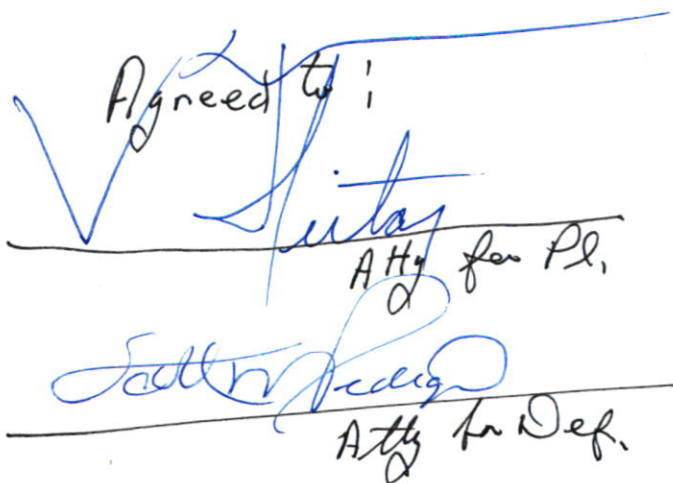 Agreed to :
Atty for Pl.
Scott
Atty for Def.